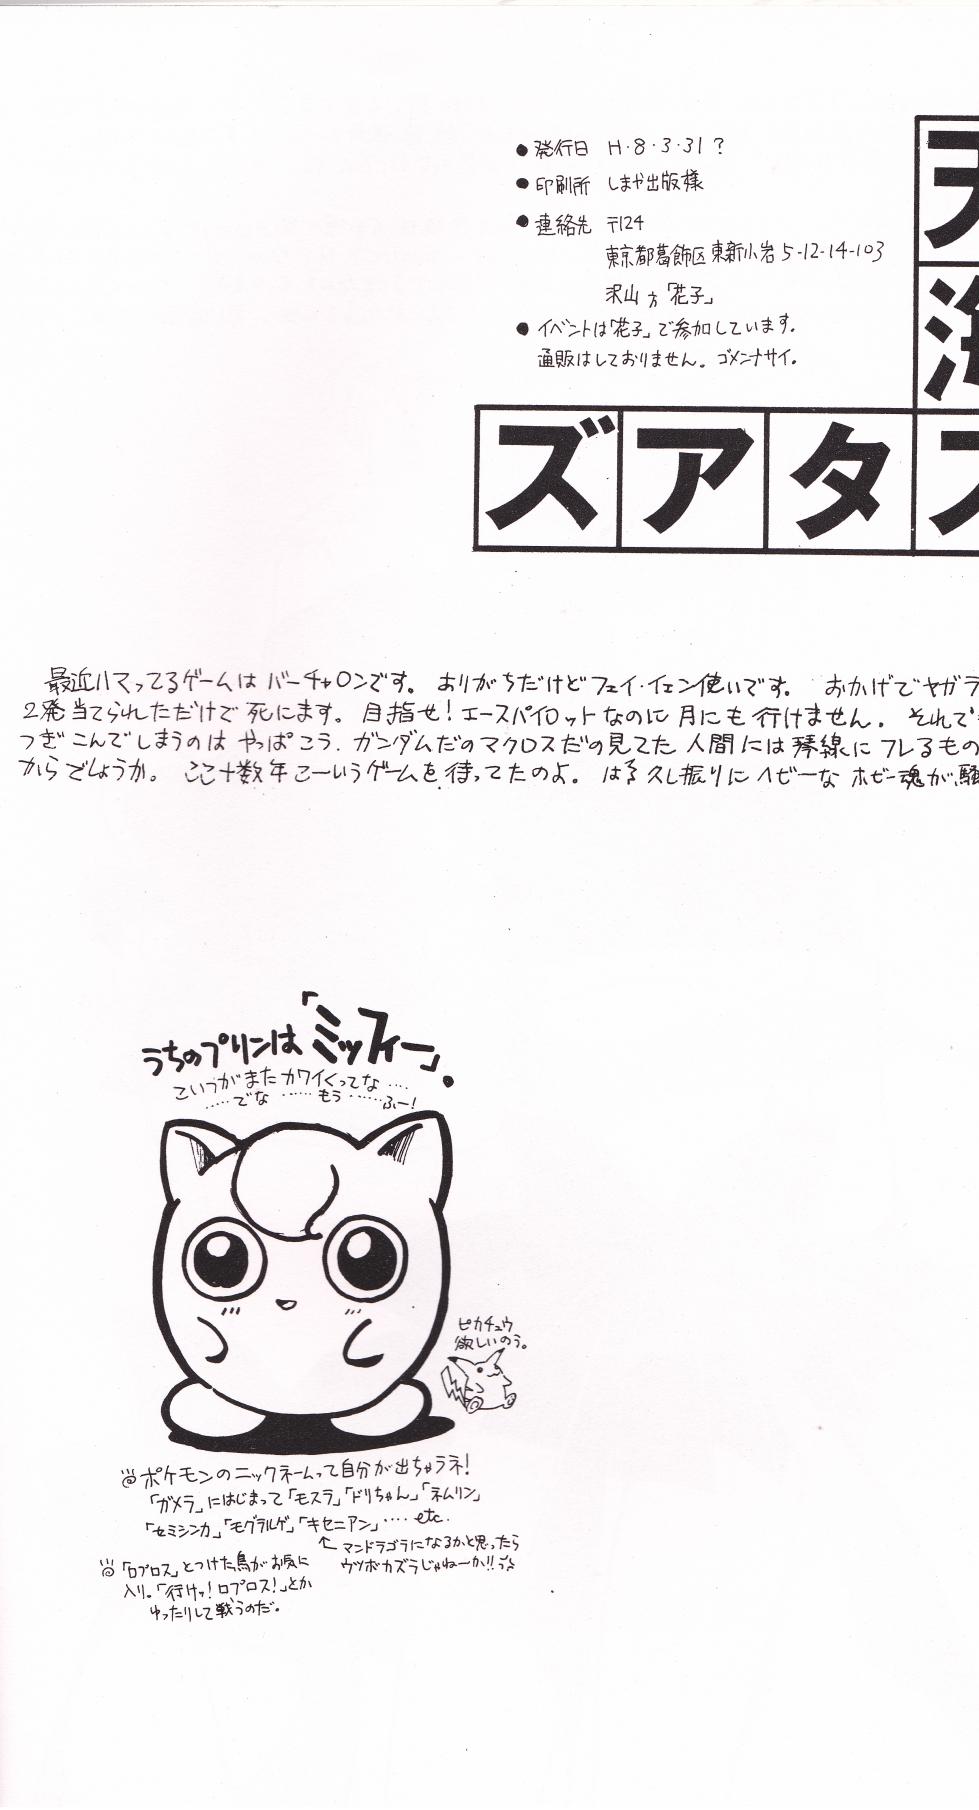 ●発行日 H・8・3・31？
●印刷所 しまや出版様
●連絡先 〒124
東京都葛飾区東新小岩5-12-14-103
沢山方「花子」
●イベントは「花子」で参加しています。
通販はしておりません。ゴメンナサイ。
天
海
ズアタス
最近ハマってるゲームはバーチャロンです。ありがちだけどフェイ・イェン使いです。 おかげでヤガラ
2発当てられただけで死にます。目指せ！エースパイロットなのに月にも行けません。それで
つぎこんでしまうのはやっぱこう、ガンダムだのマクロスだの見てた人間には琴線にフレるもの
からでしょうか。ここ十数年こーいうゲームを待ってたのよ。はる久し振りにヘビーなホビー魂が騒
うちのプリンは「ミッフィー」。
こいつがまたカワイくってな‥‥
‥‥‥でな‥‥‥もう‥‥‥ふー！
ピカチュウ
欲しいのう。
ポケモンのニックネームって自分が出ちゃうネ！
「ガメラ」にはじまって「モスラ」「ドリちゃん」「ネムリン」
「セミシンカ」「モグラルゲ」「キセニアン」‥‥etc.
↑マンドラゴラになるかと思ったら
ウツボカズラじゃねーか!!
「ロプロス」とつけた鳥がお気に
入り。「行けッ！ロプロス！」とか
ゆったりして戦うのだ。